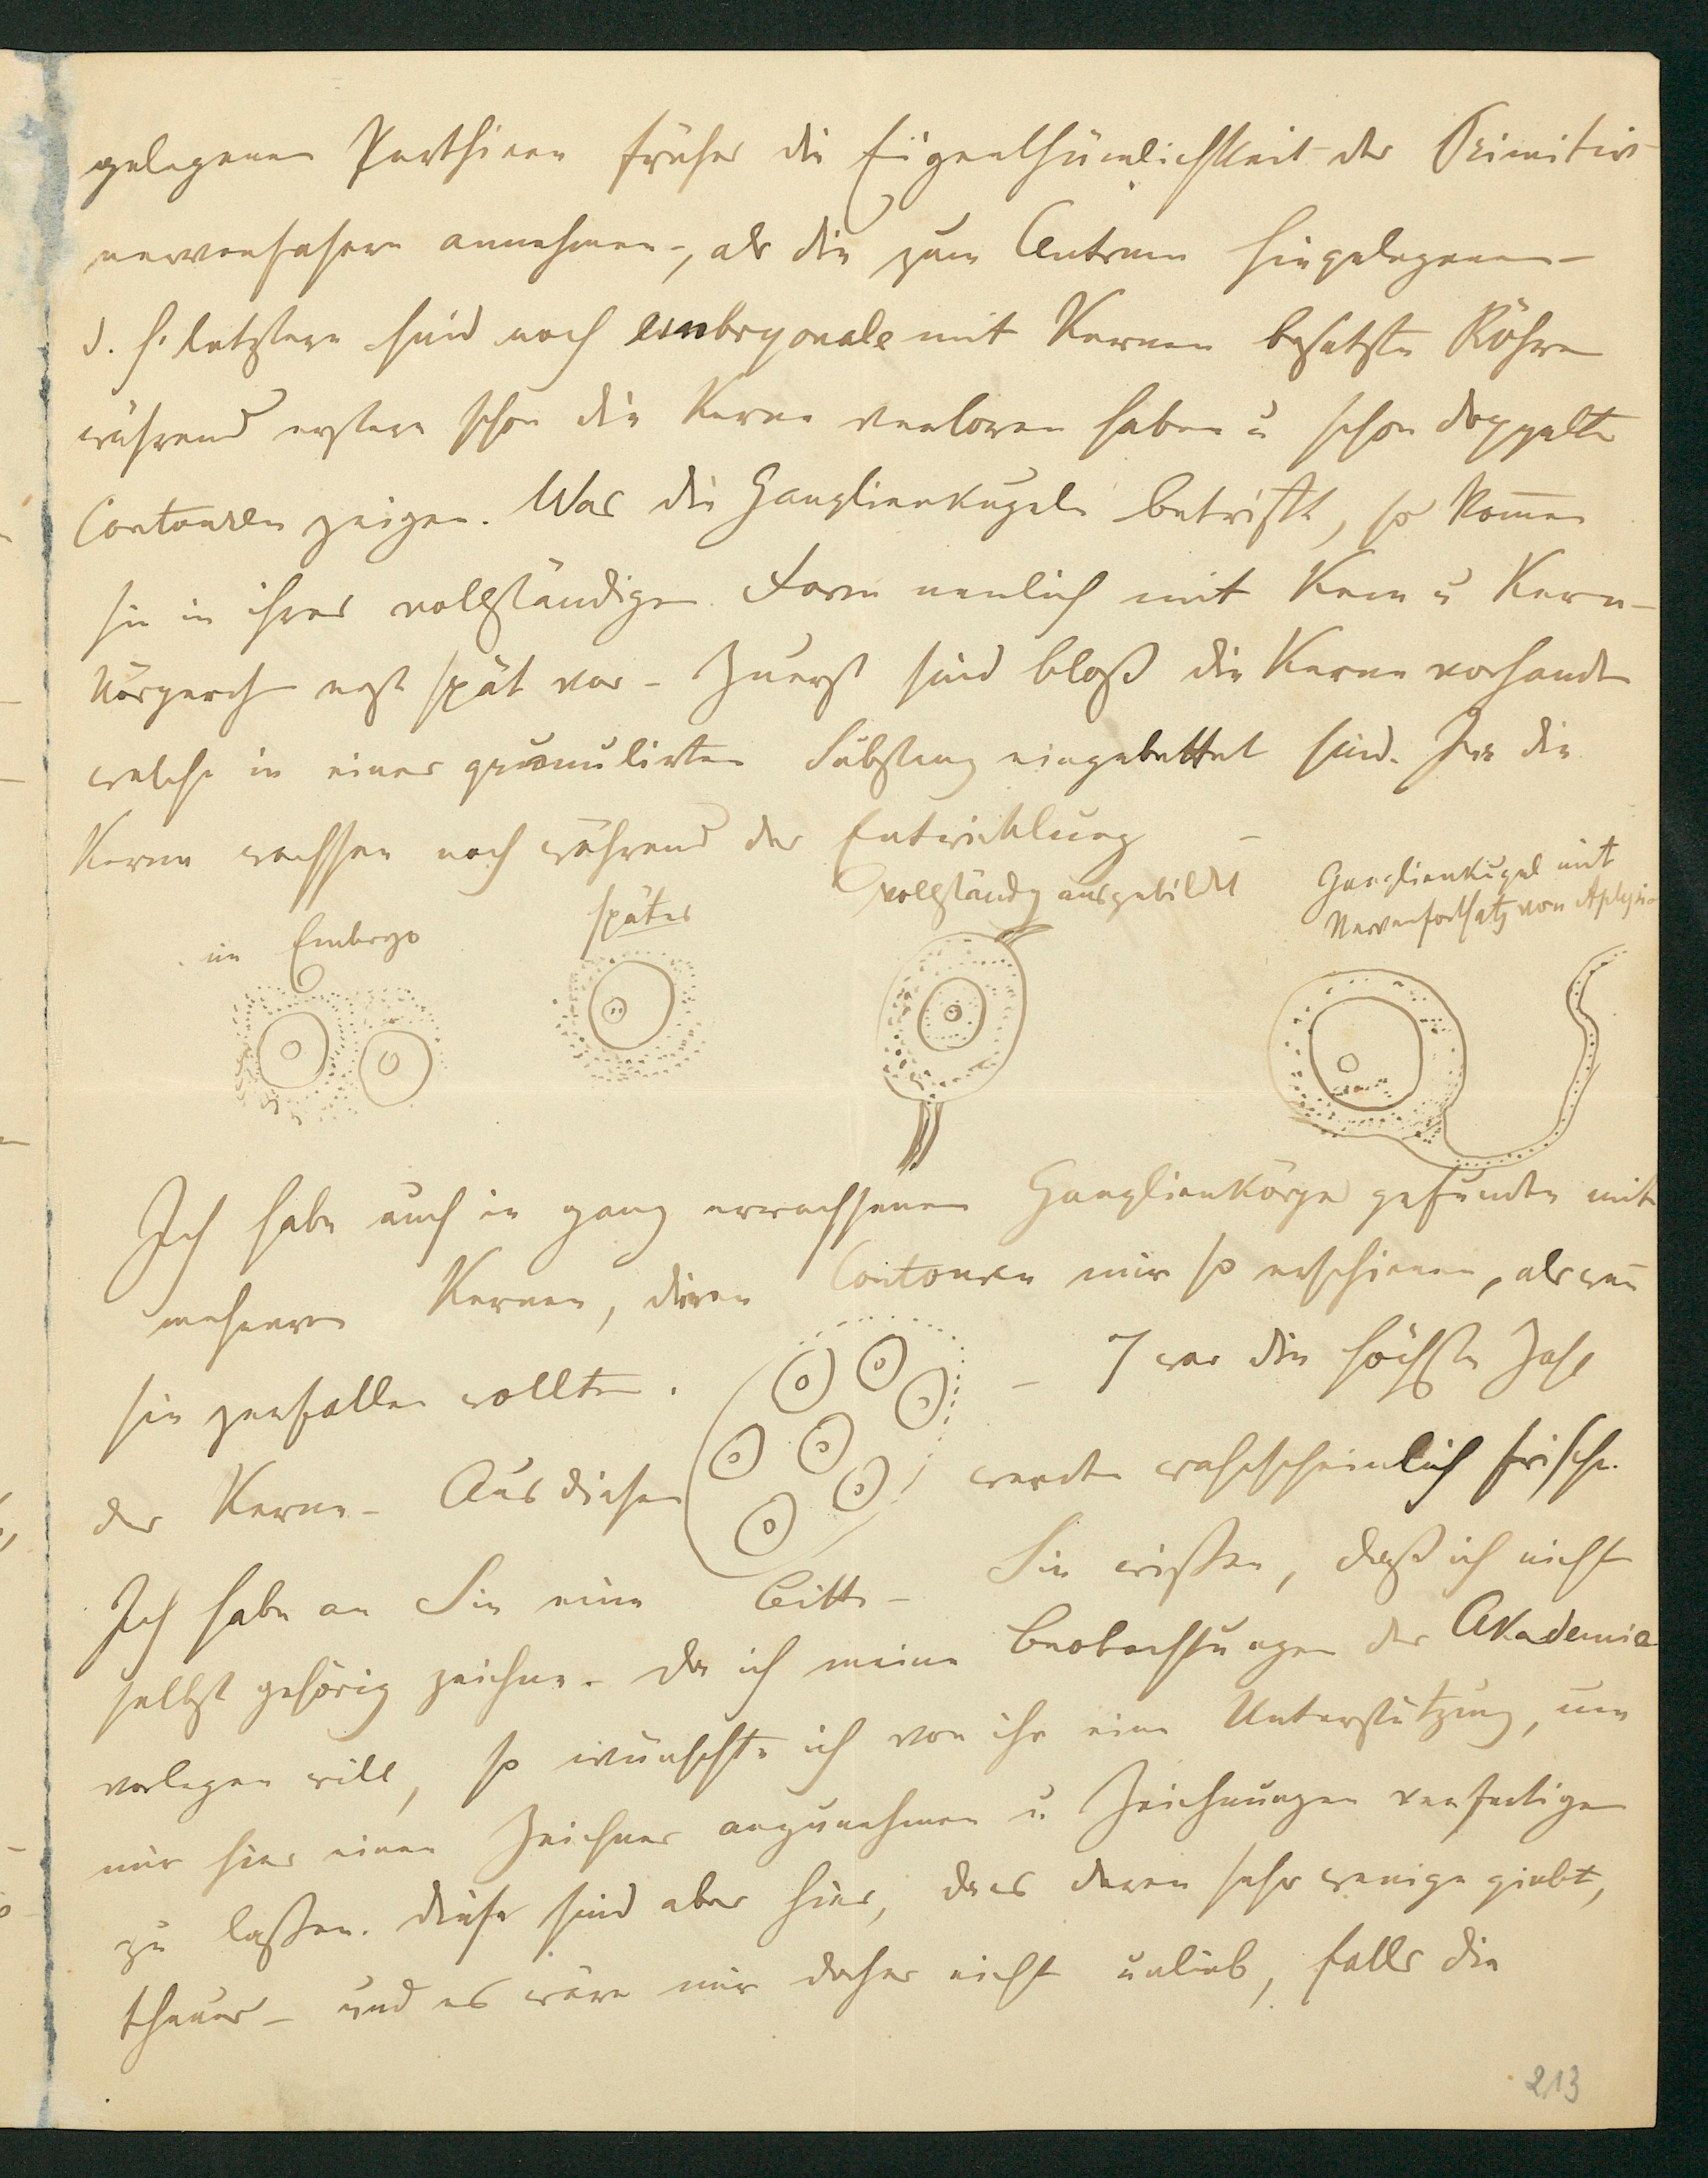 gelegenen Parthieen früher die Eigenthümlichkeit der Primitiv-
nervenfasern annehmen, als die zum Centrum hingelegenen –
d. h. letztere sind noch embryonale mit Kernen besetzte Röhren
während erstere schon die Kerne verloren haben u schon doppelte
Contouren zeigen. Was die Ganglienkugeln betrifft, so kom̄en
sie in ihrer vollständigen Form nemlich mit Kern u Kern-
körperch erst spät vor – Zuerst sind bloß die Kerne vorhanden
welche in einer granulirten Substanz eingebettet sind. die
Kerne wachsen noch während der Entwicklung –
im Embryo
später
vollständig ausgebildet
Ganglienkugel mit
Nervenfortsatz von Aplysia
Ich habe auch in ganz erwachsenen Ganglienkörper gefunden mit
mehreren Kernen, deren Contouren mir so erschienen, als wen̄
sie zerfallen wollten. – 7 war die höchste Zahl
der Kerne – Aus diesen werden wahrscheinlich frische.
Ich habe an Sie eine Bitte – Sie wißen, daß ich nicht
selbst gehörig zeichne. da ich meine Beobachtungen der Akademie
vorlegen will, so wünschte ich von ihr eine Unterstützung, um
mir hier einen Zeichner anzunehmen u Zeichnungen verfertigen
zu laßen. diese sind aber hier, da es deren sehr wenige giebt,
theuer – und es wäre mir daher nicht unlieb, falls die
213